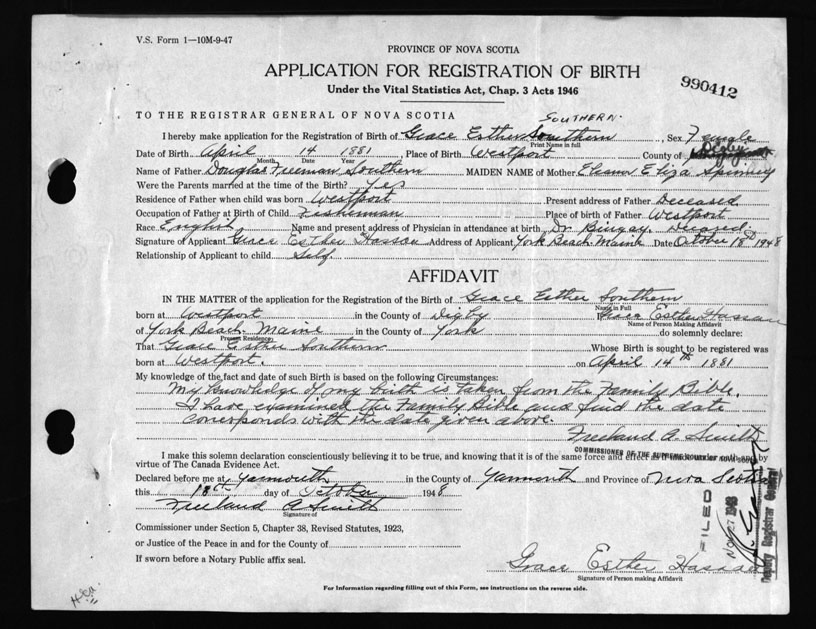 V.S. Form 1—10M-9-47
PROVINCE OF NOVA SCOTIA
APPLICATION FOR REGISTRATION OF BIRTH
990412
Under the Vital Statistics Act, Chap. 3 Acts 1946
TO THE REGISTRAR GENERAL OF NOVA SCOTIA
SOUTHERN.
I hereby make application for the Registration of Birth of Grace Esther Southern, Sex Female
Print Name in full
Date of Birth April 14 1881 Place of Birth Westport County of Digby
Month Date Year
Name of Father Douglas Freeman Southern MAIDEN NAME of Mother Eleanor Eliza Spinney
Were the Parents married at the time of the Birth? Yes
Residence of Father when child was born Westport Present address of Father Deceased
Occupation of Father at Birth of Child Fisherman Place of birth of Father Westport
Race English Name and present address of Physician in attendance at birth Dr. Bingay. Deceased
Signature of Applicant Grace Esther Hassan Address of Applicant York Beach Maine Date October 18th 1948
Relationship of Applicant to child Self.
AFFIDAVIT
IN THE MATTER of the application for the Registration of the Birth of Grace Esther Southern
Name in Full
born at Westport in the County of Digby I, Grace Esther Hassan
Name of Person Making Affidavit
of York Beach Maine in the County of York do solemnly declare:
Present Residence
That Grace Esther Southern Whose Birth is sought to be registered was
born at Westport. on April 14th 1881
My knowledge of the fact and date of such Birth is based on the following Circumstances:
My knowledge of my birth is taken from the Family Bible.
I have examined the Family Bible and find the date
corresponds with the date given above.
Freeland A. Smith
COMMISSIONER OF THE SUPREME COURT OF NOVA SCOTIA
I make this solemn declaration conscientiously believing it to be true, and knowing that it is of the same force and effect as if made under oath and by
virtue of The Canada Evidence Act.
Declared before me at Yarmouth in the County of Yarmouth and Province of Nova Scotia
this 18th day of October 1948
Freeland A Smith
Signature of
Commissioner under Section 5, Chapter 38, Revised Statutes, 1923,
or Justice of the Peace in and for the County of
If sworn before a Notary Public affix seal.
Grace Esther Hassan
Signature of Person making Affidavit
FILED
NOV 27 1948
Deputy Registrar General
For Information regarding filling out of this Form, see instructions on the reverse side.